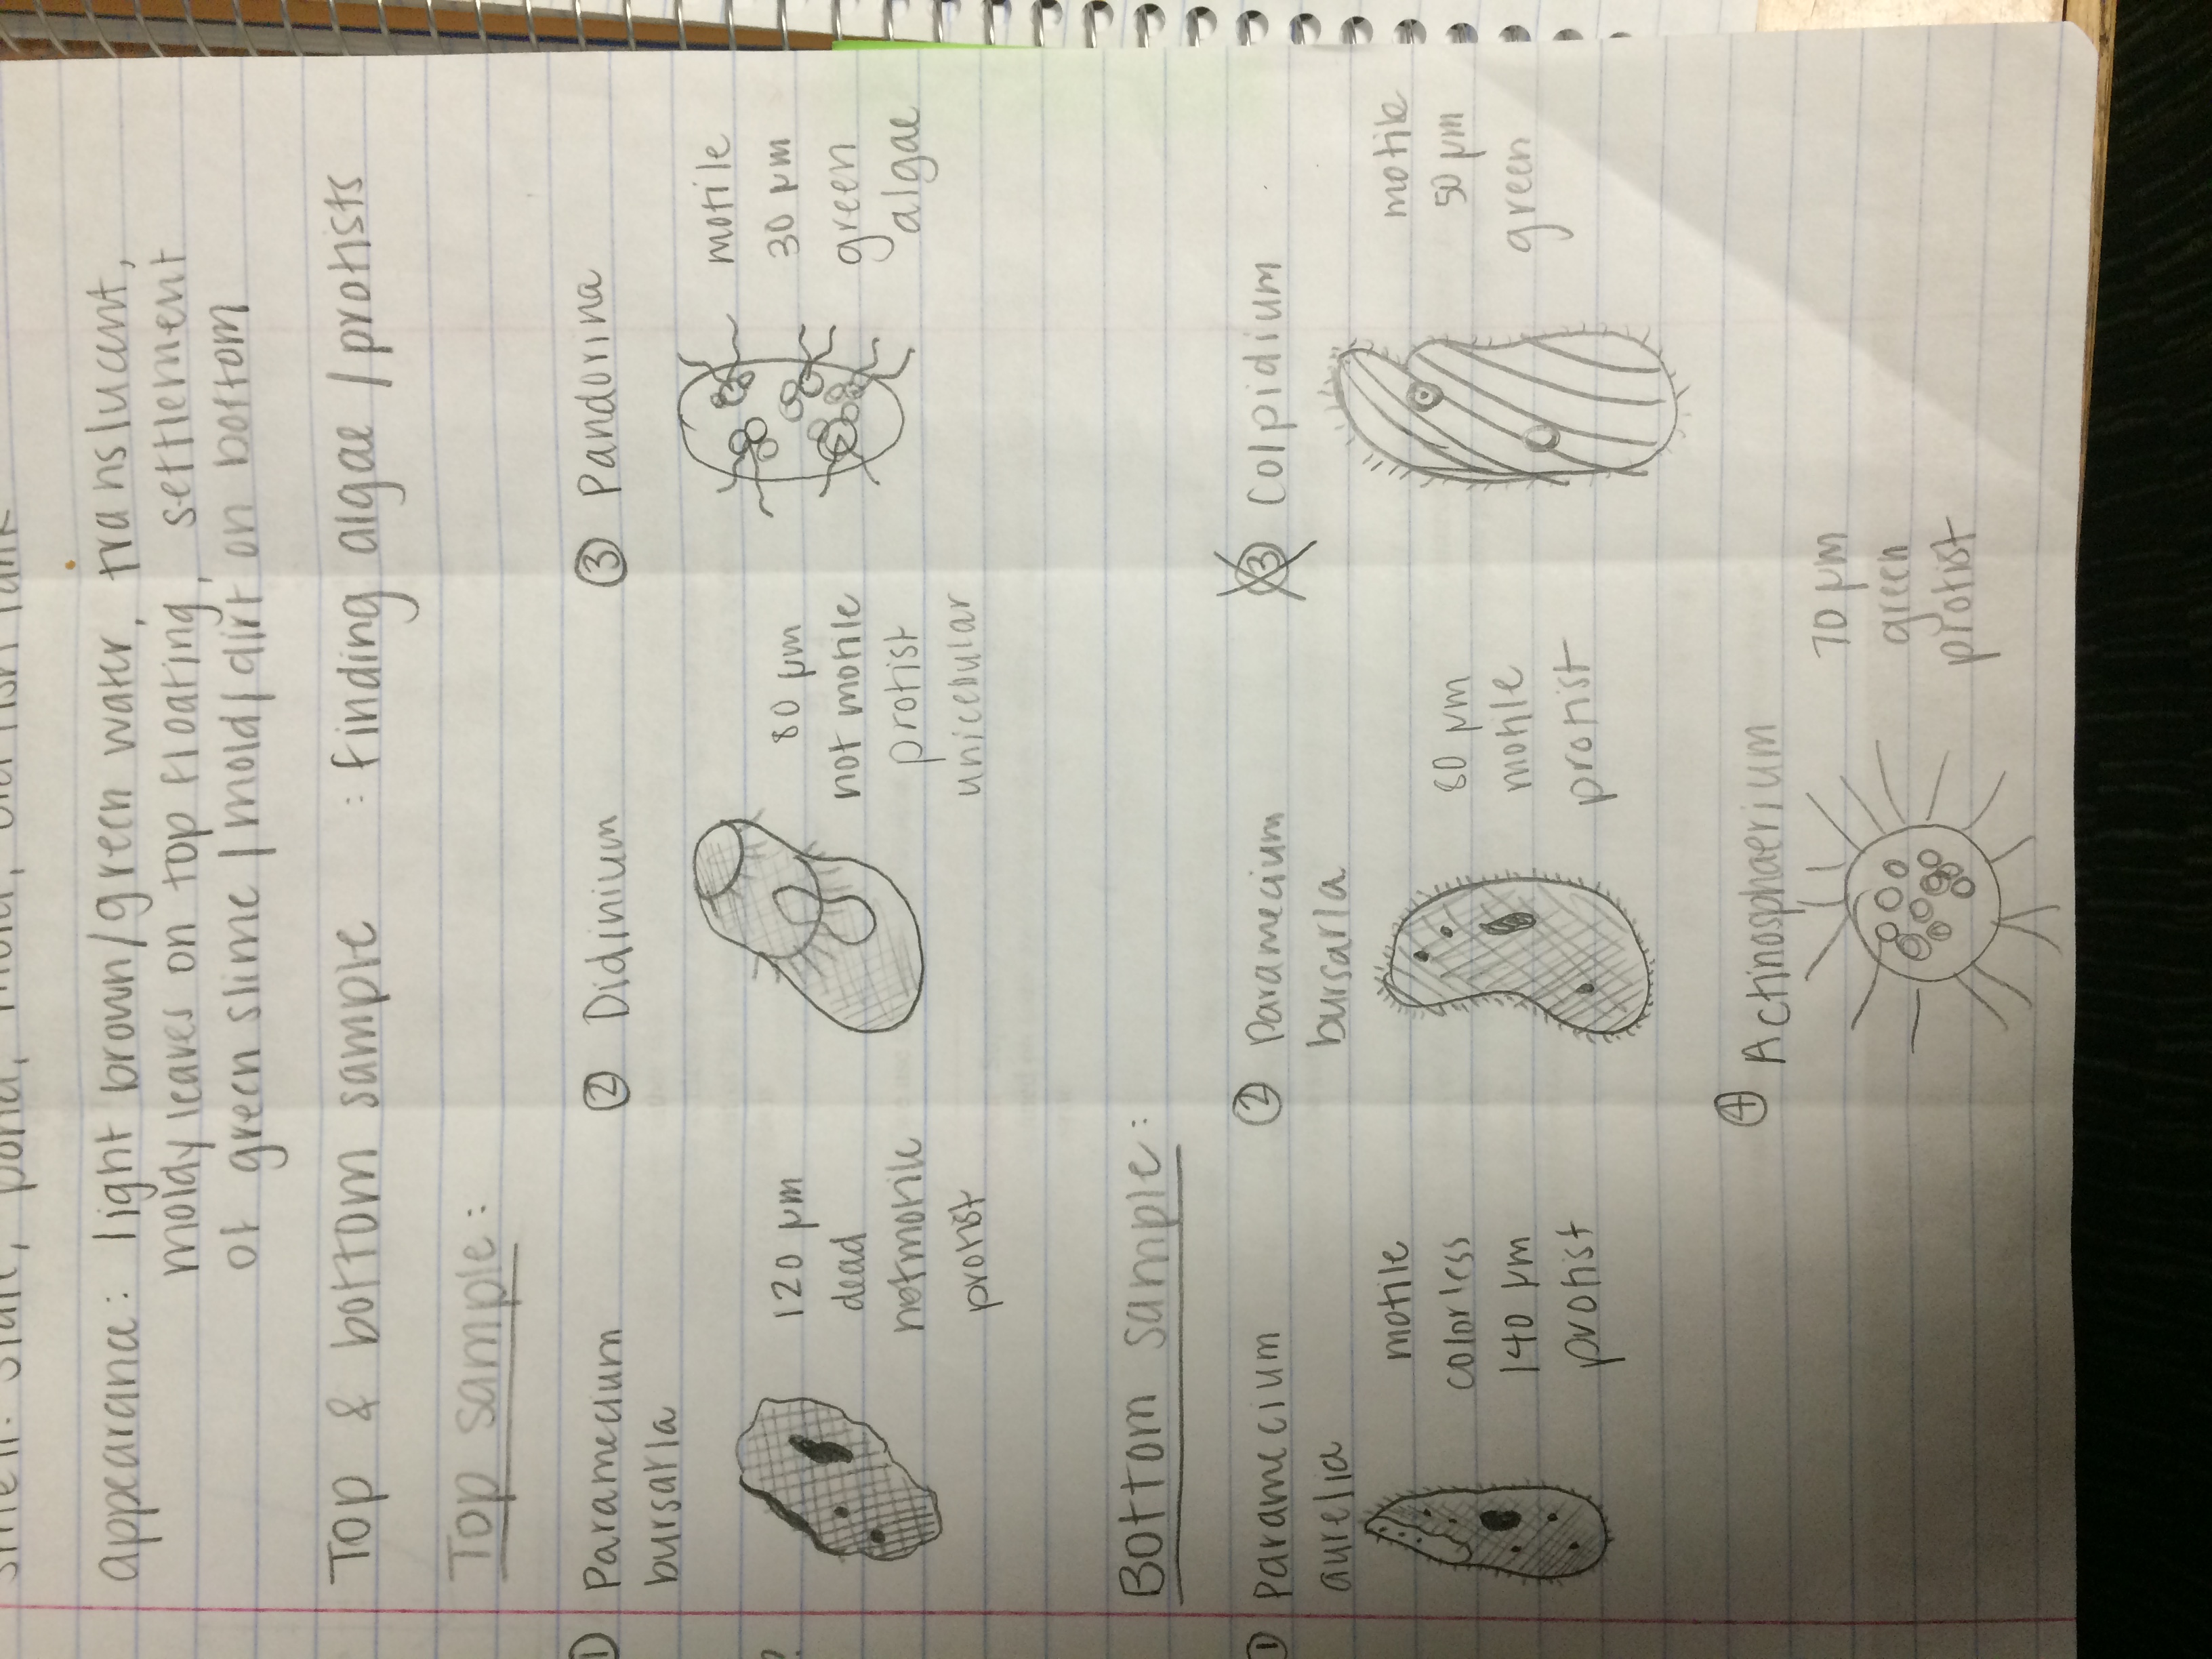 smell: stale, pond, mold, old fish tank
appearance: light brown/green water, translucent,
moldy leaves on top floating, settlement
of green slime/mold/dirt on bottom
Top & bottom sample : finding algae/protists
Top sample:
① Paramecium
bursaria
120 μm
dead
not motile
protist
?
② Didinium
80 μm
not motile
protist
unicellular
③ Pandorina
motile
30 μm
green
algae
Bottom sample:
① Paramecium
aurelia
motile
colorless
140 μm
protist
② Paramecium
bursaria
80 μm
motile
protist
③ Colpidium
motile
50 μm
green
④ Actinosphaerium
70 μm
green
protist